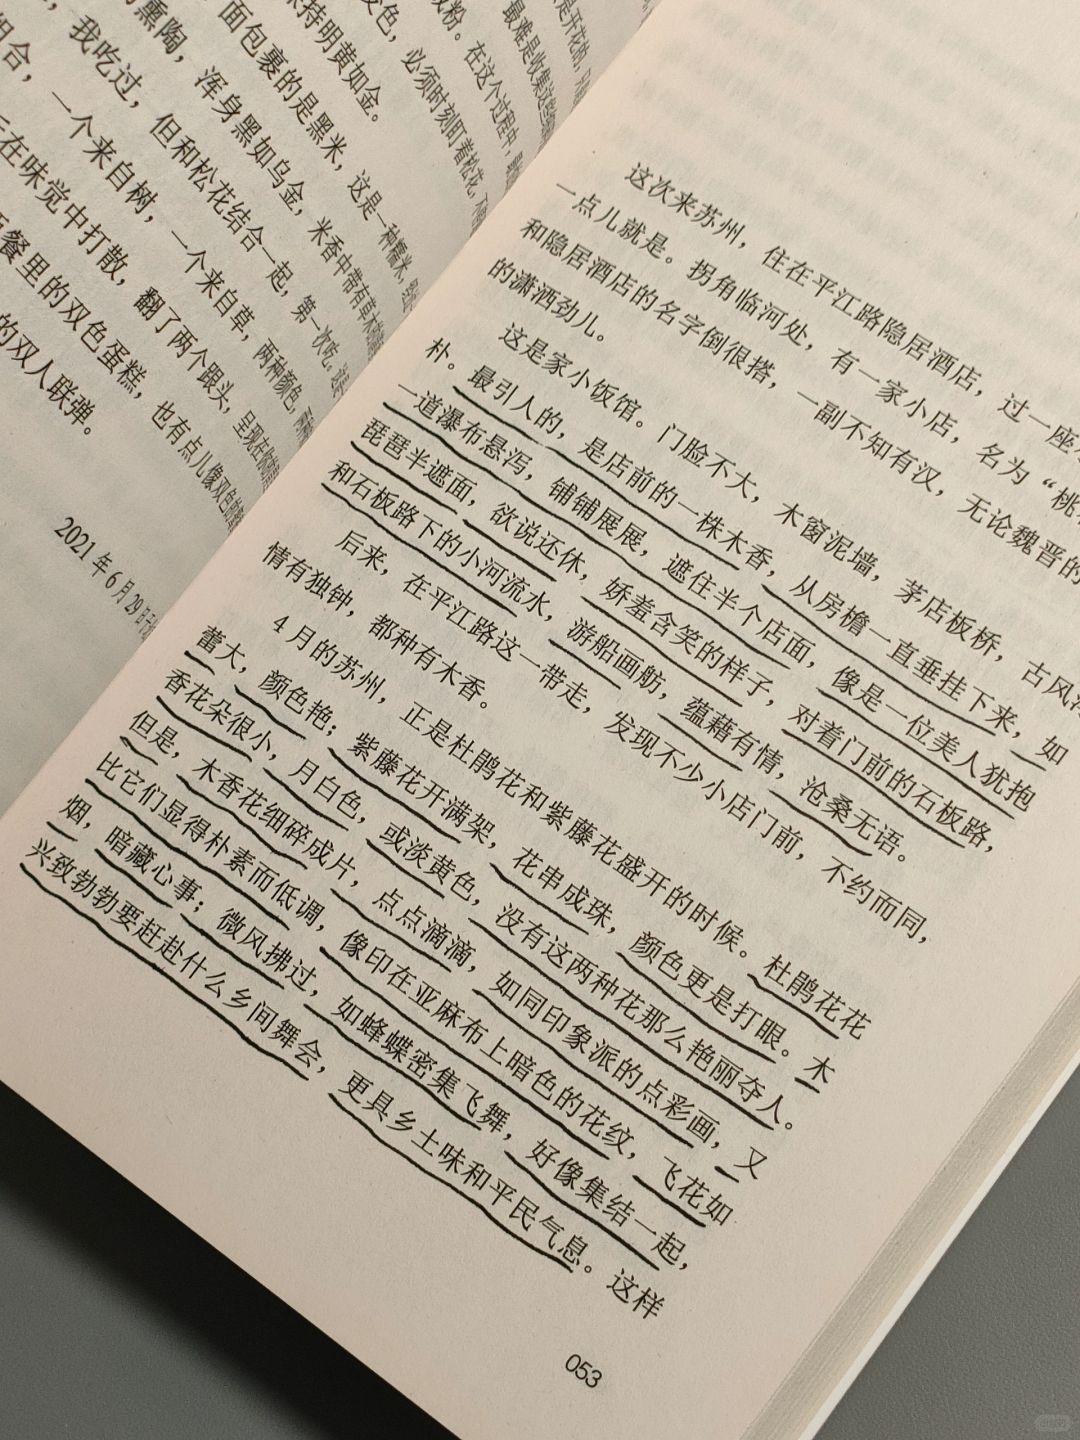 是开花的，
最难是收集这些
粉。在这个过程中，
色，必须时刻盯着松花，
保持明黄如金。
面包裹的是黑米，这是一种糯米，
熏陶，浑身黑如乌金，米香中带有草木
我吃过，但和松花结合一起，第一次吃。
组合，一个来自树，一个来自草，两种颜色，
在味觉中打散，翻了两个跟头，呈现在你
餐里的双色蛋糕，也有点儿像双色
的双人联弹。
2021年6月29日
这次来苏州，住在平江路隐居酒店，过一座
一点儿就是。拐角临河处，有一家小店，名为“桃
和隐居酒店的名字倒很搭，一副不知有汉，无论魏晋的
的潇洒劲儿。
这是家小饭馆。门脸不大，木窗泥墙，茅店板桥，古风
朴。最引人的，是店前的一株木香，从房檐一直垂挂下来，如
一道瀑布悬泻，铺铺展展，遮住半个店面，像是一位美人犹抱
琵琶半遮面，欲说还休，娇羞含笑的样子，对着门前的石板路，
和石板路下的小河流水，游船画舫，蕴藉有情，沧桑无语。
后来，在平江路这一带走，发现不少小店门前，不约而同，
情有独钟，都种有木香。
4月的苏州，正是杜鹃花和紫藤花盛开的时候。杜鹃花花
蕾大，颜色艳；紫藤花开满架，花串成珠，颜色更是打眼。木
香花朵很小，月白色，或淡黄色，没有这两种花那么艳丽夺人。
但是，木香花细碎成片，点点滴滴，如同印象派的点彩画，又
比它们显得朴素而低调，像印在亚麻布上暗色的花纹，飞花如
烟，暗藏心事；微风拂过，如蜂蝶密集飞舞，好像集结一起，
兴致勃勃要赶赴什么乡间舞会，更具乡土味和平民气息。这样
053